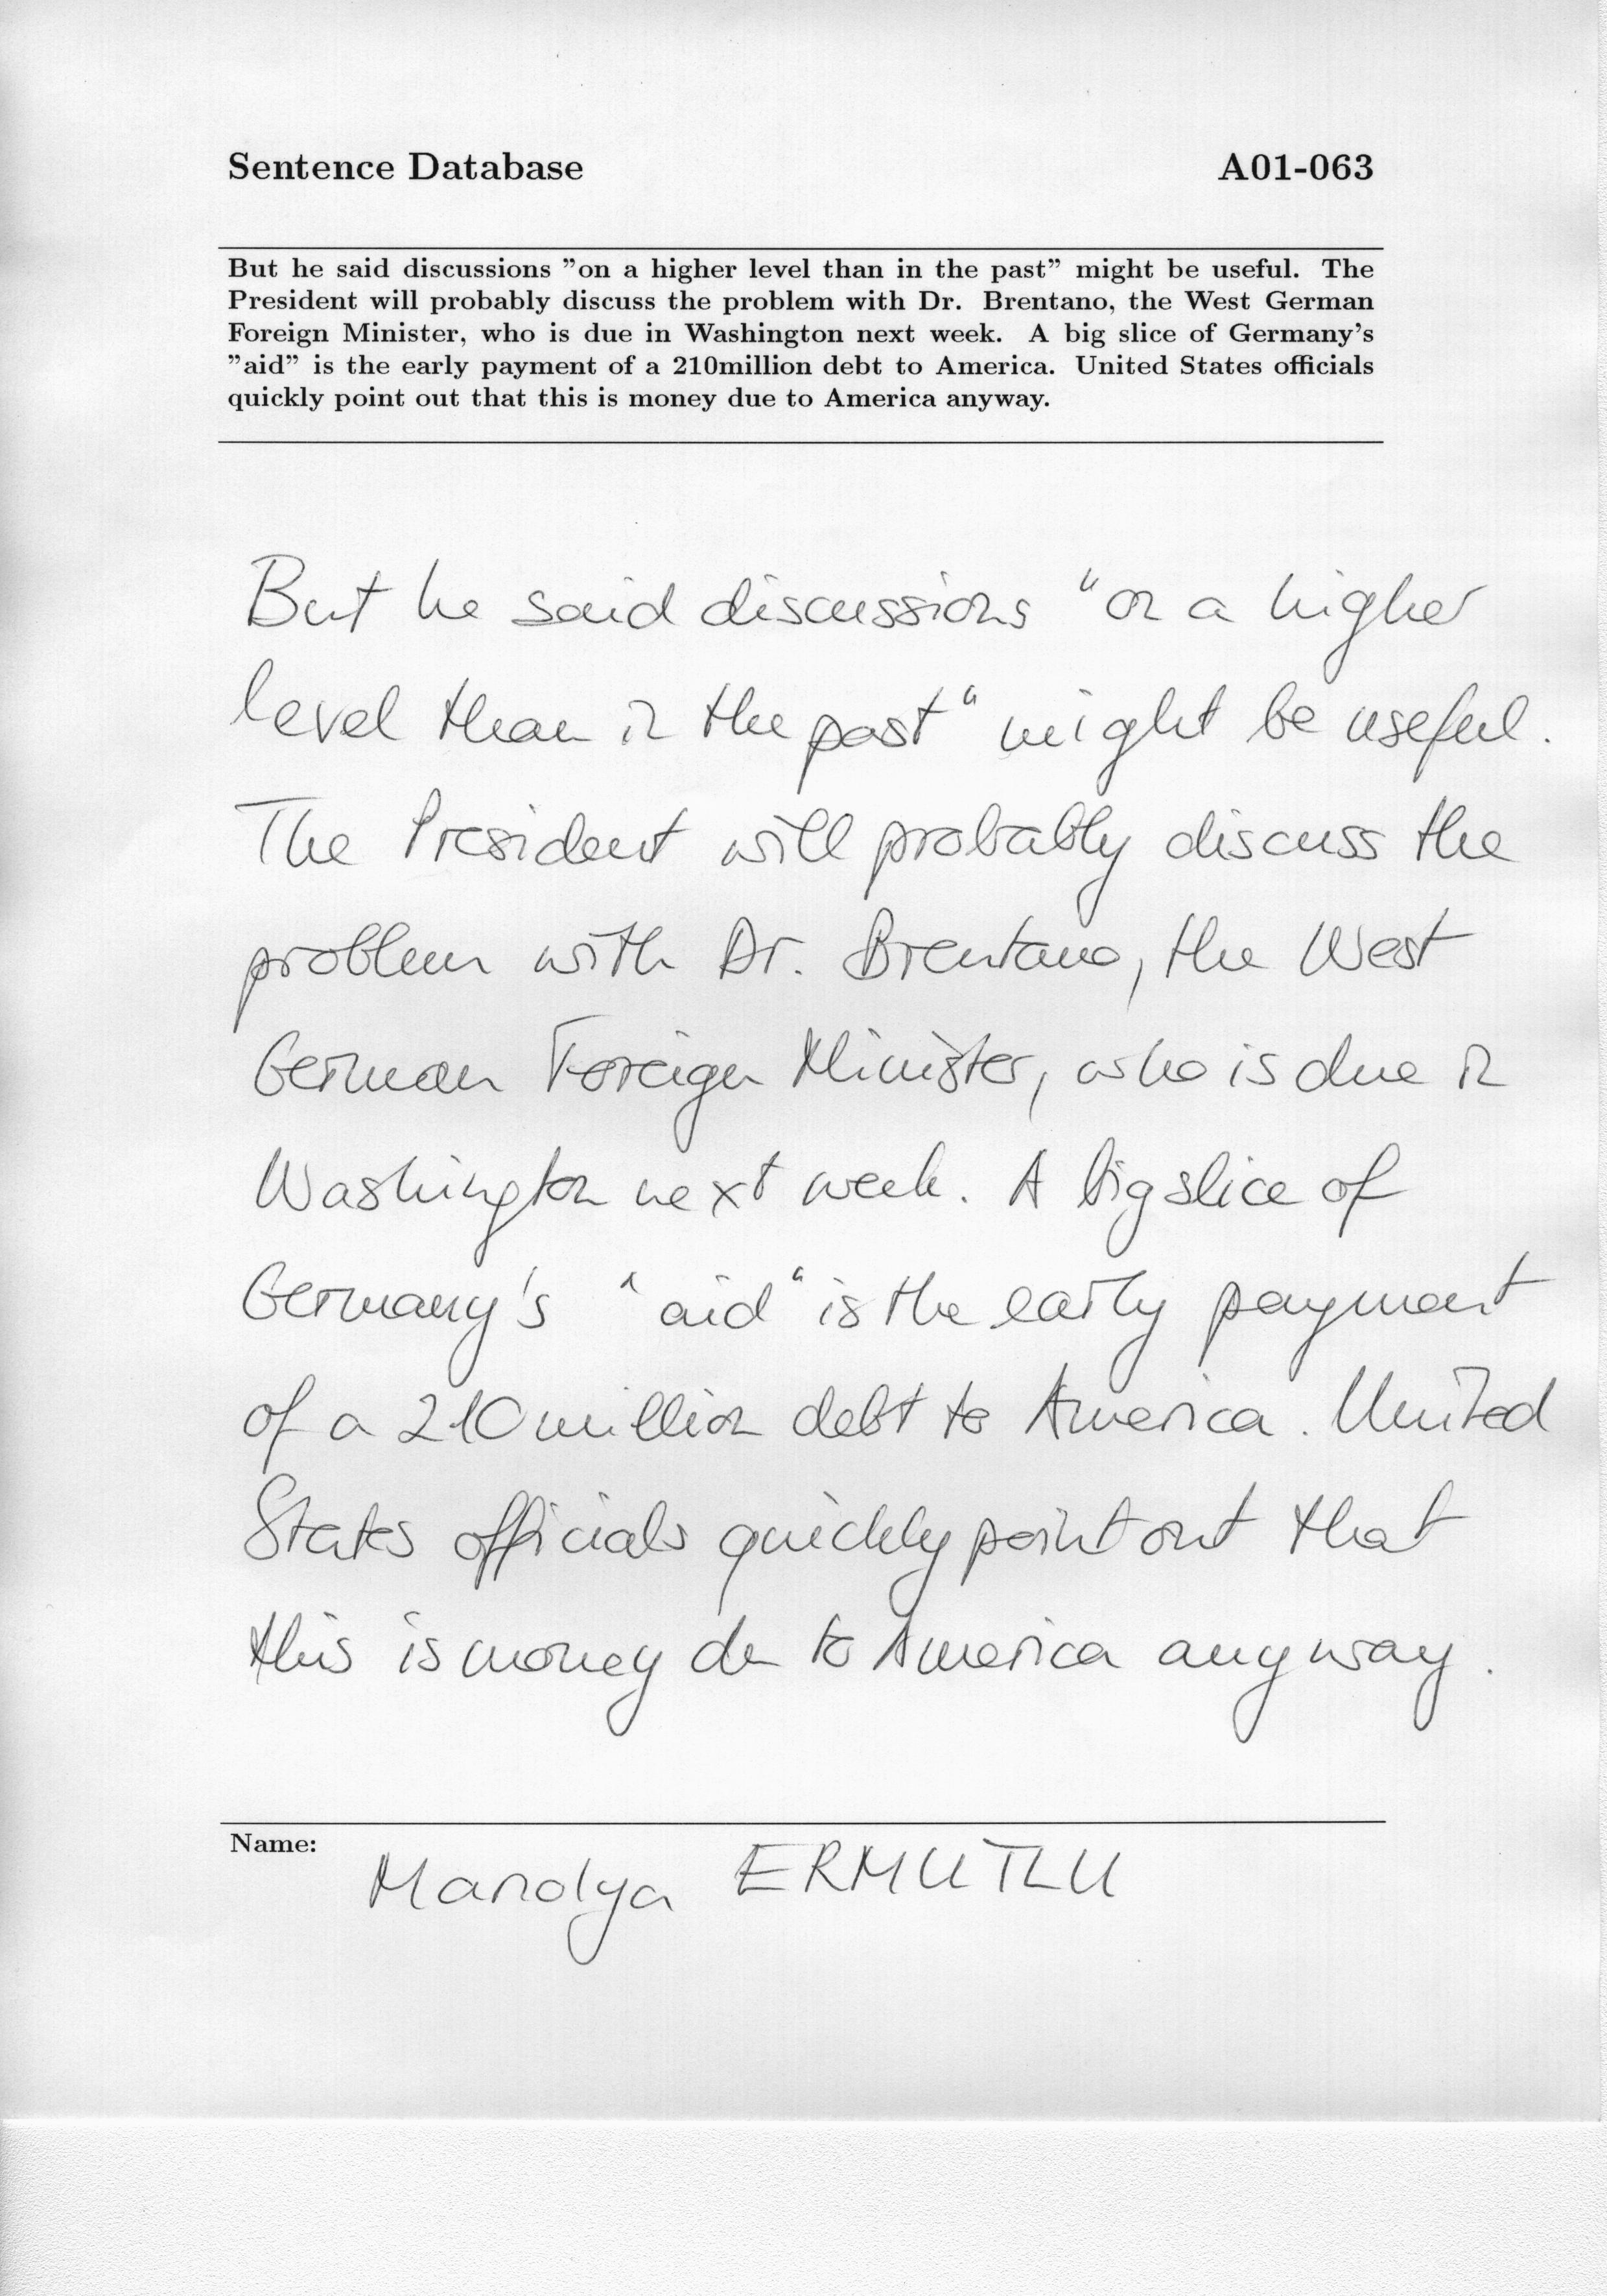 Sentence Database A01-063
But he said discussions ”on a higher level than in the past” might be useful. The
President will probably discuss the problem with Dr. Brentano, the West German
Foreign Minister, who is due in Washington next week. A big slice of Germany's
”aid” is the early payment of a 210million debt to America. United States officials
quickly point out that this is money due to America anyway.
But he said discussions “on a higher
level than in the past“ might be useful.
The President will probably discuss the
problem with Dr. Brentano, the West
German Foreign Minister, who is due in
Washington next week. A big slice of
Germany's “aid“ is the early payment
of a 210million debt to America. United
States officials quickly point out that
this is money du to America anyway.
Name: Manolya ERMUTLU